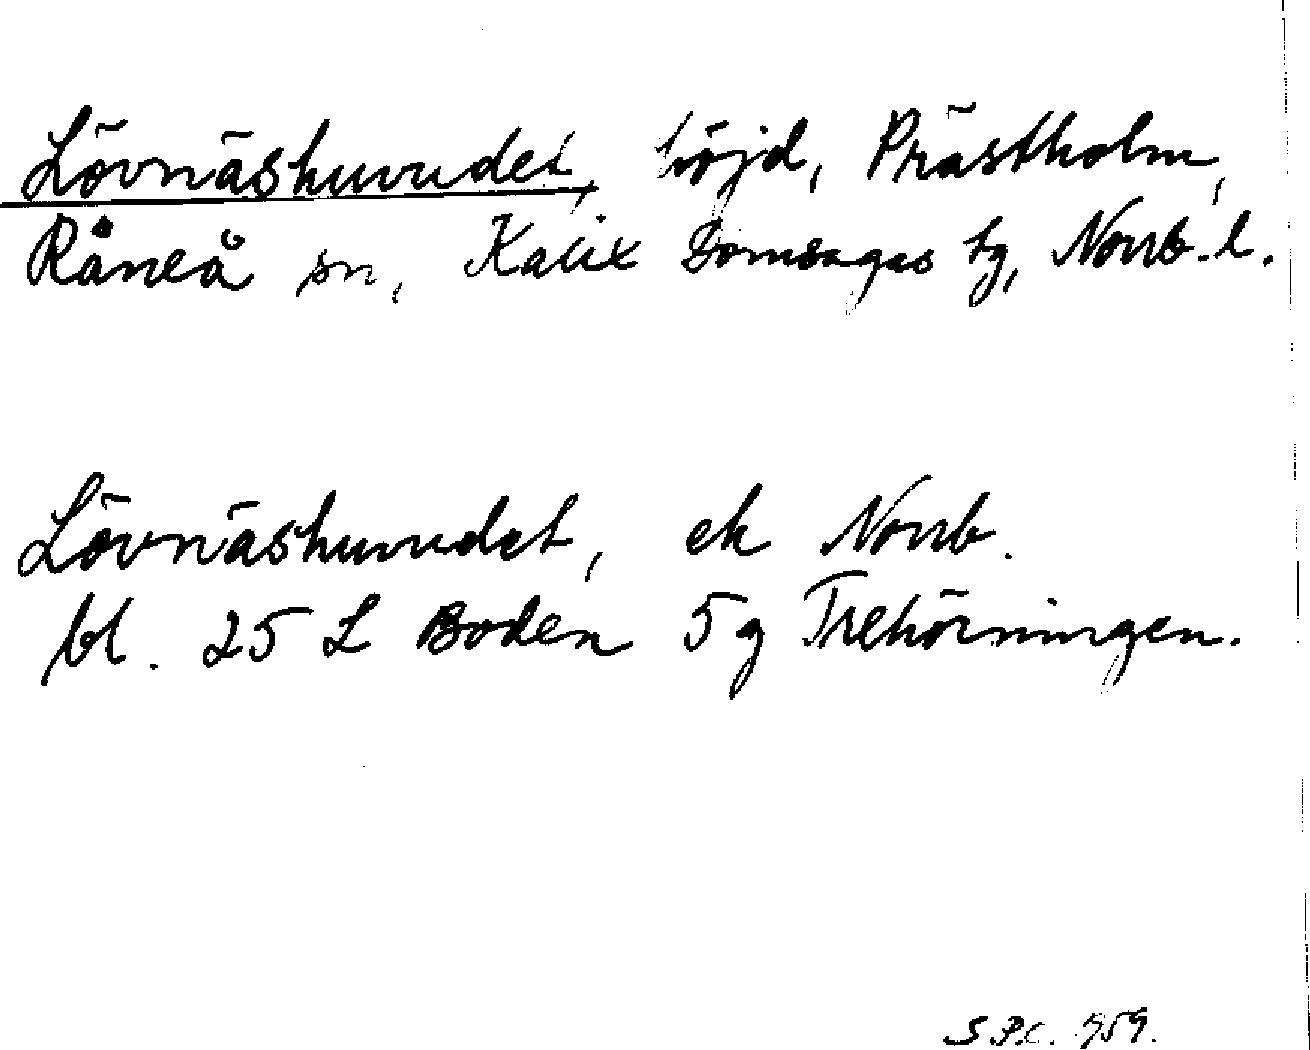 Lövnäshuvudet, höjd, Prästholm,
Råneå sn, Kalix Domsagas tg, Norrb. l.
Lövnäshuvudet, ek Norrb.
bl. 25 L Boden 5 g Trehörningen.
S.P.C. 959.